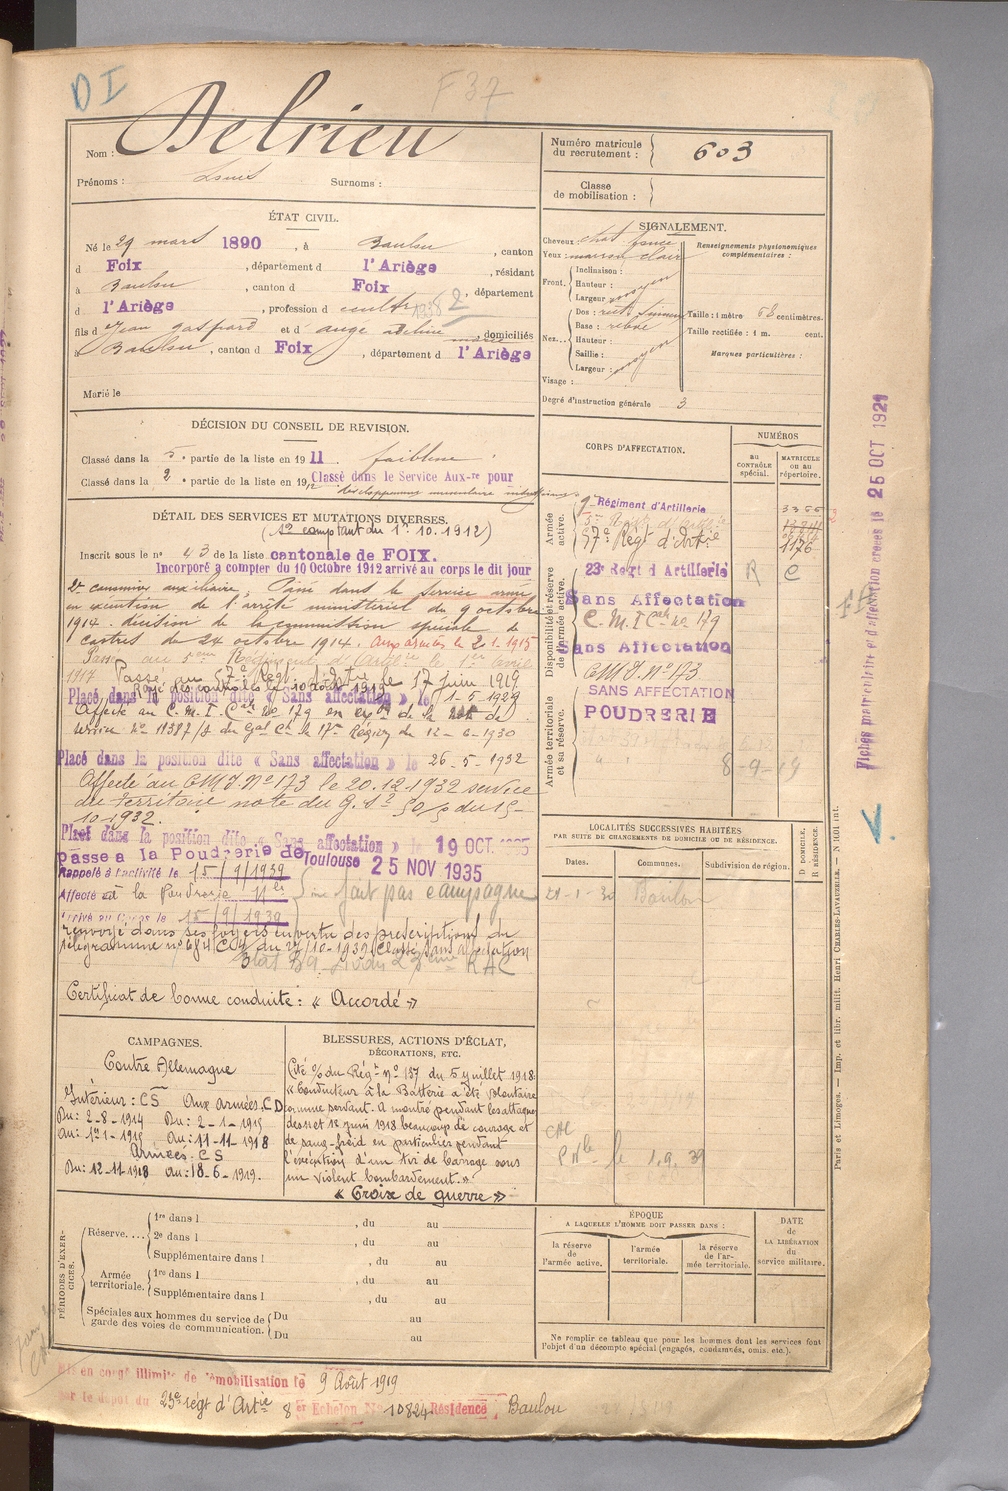 DI
F37
Nom : Delrieu
Prénoms : Louis Surnoms :
Numéro matricule du recrutement : 603
Classe de mobilisation :
ÉTAT CIVIL.
Né le 29 mars 1890, à Baulou, canton
d Foix, département d l'Ariège, résidant
à Baulou, canton d Foix, département
d l'Ariège, profession de cultr
fils d Jean Gaspard et d' ange adeline, domiciliés
à Baulou, canton d Foix, département d l'Ariège
Marié le
SIGNALEMENT.
Cheveux chat foncé
Yeux marron clair
Front. Inclinaison :
Hauteur :
Largeur moyen
Nez. Dos : rect
Base :
Hauteur :
Saillie :
Largeur : moyen
Visage :
Renseignements physionomiques complémentaires :
Taille : 1 mètre centimètres.
Taille rectifiée : 1 m. cent.
Marques particulières :
Degré d'instruction générale 3
DÉCISION DU CONSEIL DE REVISION.
Classé dans la 5e partie de la liste en 1911 faiblesse
Classé dans la 2e partie de la liste en 1912 Classé dans le Service Aux-re pour
développement musculaire
DÉTAIL DES SERVICES ET MUTATIONS DIVERSES.
(Se comptant du 1er 10. 1912)
Inscrit sous le n° 43 de la liste cantonale de FOIX.
Incorporé à compter du 10 Octobre 1912 arrivé au corps le dit jour
2e canonnier auxiliaire. Passé dans le service armé
en exécution de l'arrêté ministériel du 9 octobre
1914. décision de la commission spéciale de
Castres du 24 octobre 1914. Aux armées le 2-1-1915
Passé au Régiment d'Artillerie le 1er avril
1917 Passé au 57e Régt d'Artie le 17 juin 1919
Placé dans la position dite « Sans affectation » le 1-5-1929
Affecté au C.M.I. Cat n° 179 en exon de la de
service N° 11387/1 du Gal Ct la 17e Région du 12-6-1930
Placé dans la position dite « Sans affectation » le 26-5-1932
Affecté au CMI. N° 173 le 20.12.1932 service
du territoire note du
10.1932.
Placé dans la position dite « Sans affectation » le 19 OCT. 1935
Passé à la Poudrerie de Toulouse 25 NOV 1935
Rappelé à l'activité le 15/9/1939
Affecté à la Poudrerie Nle
Arrivé au Corps le 15/9/1939
ne fait pas campagne
renvoyé dans ses foyers en vertu des prescriptions du
télégramme n° 684 C/4 du 27/10-1939. Classé sans affectation
Certificat de bonne conduite : « Accordé »
CORPS D'AFFECTATION.
NUMÉROS
AU CONTRÔLE SPÉCIAL.
MATRICULE OU AU RÉPERTOIRE.
Armée active.
9e Régiment d'Artillerie
57e Régt d'Artie 1176
Disponibilité et réserve de l'armée active.
23e Régt d'Artillerie R C
Sans Affectation
C.M.I Cat n° 179
Sans Affectation
CMI. N° 173
Armée territoriale et sa réserve.
SANS AFFECTATION
POUDRERIE
8-9-19
LOCALITÉS SUCCESSIVES HABITÉES
PAR SUITE DE CHANGEMENTS DE DOMICILE OU DE RÉSIDENCE.
Dates.
Communes.
Subdivision de région.
D DOMICILE,
R RÉSIDENCE.
Baulou
P Nle le 1.9.39
Fiches matriculaire et d'affectation créées le 25 OCT 1921
V.
CAMPAGNES.
Contre Allemagne
Intérieur : CS Aux armées. CD
Du : 2-8-1914 Du : 2-1-1915
Au : 1er 1-1915 Au : 11-11-1918
Armées : CS
Du : 12-11-1918 au : 18-6-1919.
BLESSURES, ACTIONS D'ÉCLAT, DÉCORATIONS, ETC.
Cité O/ du Régt n° 157 du 5 juillet 1918 :
« Conducteur à la Batterie a été volontaire
comme servant. A montré pendant les attaques
des 11 et 12 juin 1918 beaucoup de courage et
de sang-froid en particulier pendant
l'exécution d'un tir de barrage sous
un violent bombardement. »
« Croix de guerre »
PÉRIODES D'EXERCICES.
Réserve....
1re dans l , du au
2e dans l , du au
Supplémentaire dans l , du au
Armée territoriale.
1re dans l , du au
Supplémentaire dans l , du au
Spéciales aux hommes du service de garde des voies de communication.
Du au
Du au
ÉPOQUE
A LAQUELLE L'HOMME DOIT PASSER DANS :
la réserve de l'armée active.
l'armée territoriale.
la réserve de l'armée territoriale.
DATE de LA LIBÉRATION du service militaire.
Ne remplir ce tableau que pour les hommes dont les services font
l'objet d'un décompte spécial (engagés, condamnés, omis, etc.).
Mis en congé illimité de démobilisation le 9 Août 1919
par le dépôt du 23e régt d'Artie 8 er Echelon N° 10824 Résidence Baulou
Paris et Limoges. — Imp. et libr. milit. Henri CHARLES-LAVAUZELLE. — N 3401 int.